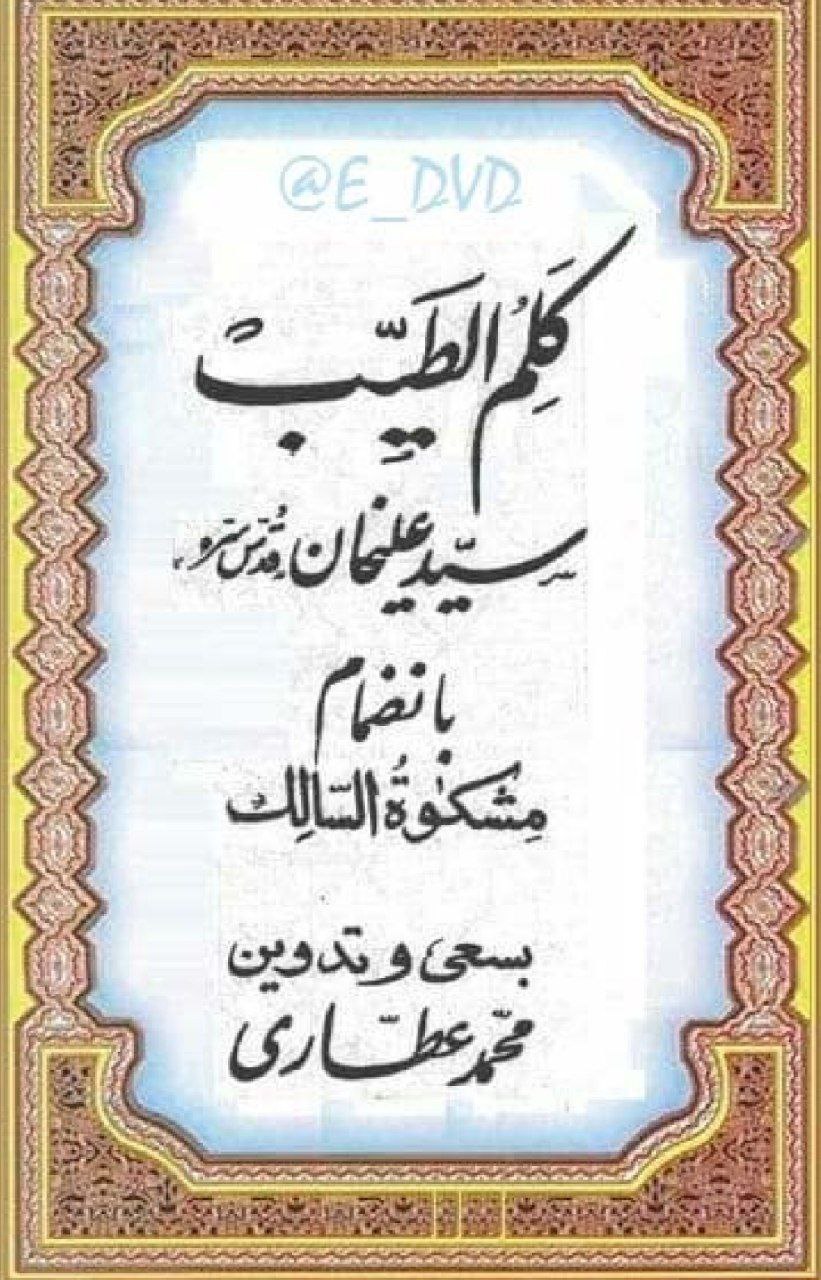 @E_DVD
کَلِمُ الطَیِّبْ
سیّد علیخان قُدّسَ سِرُّه
بانضمام
مِشکوٰةُ السّالِک
بسعی و تدوین
محمّد عطّاری